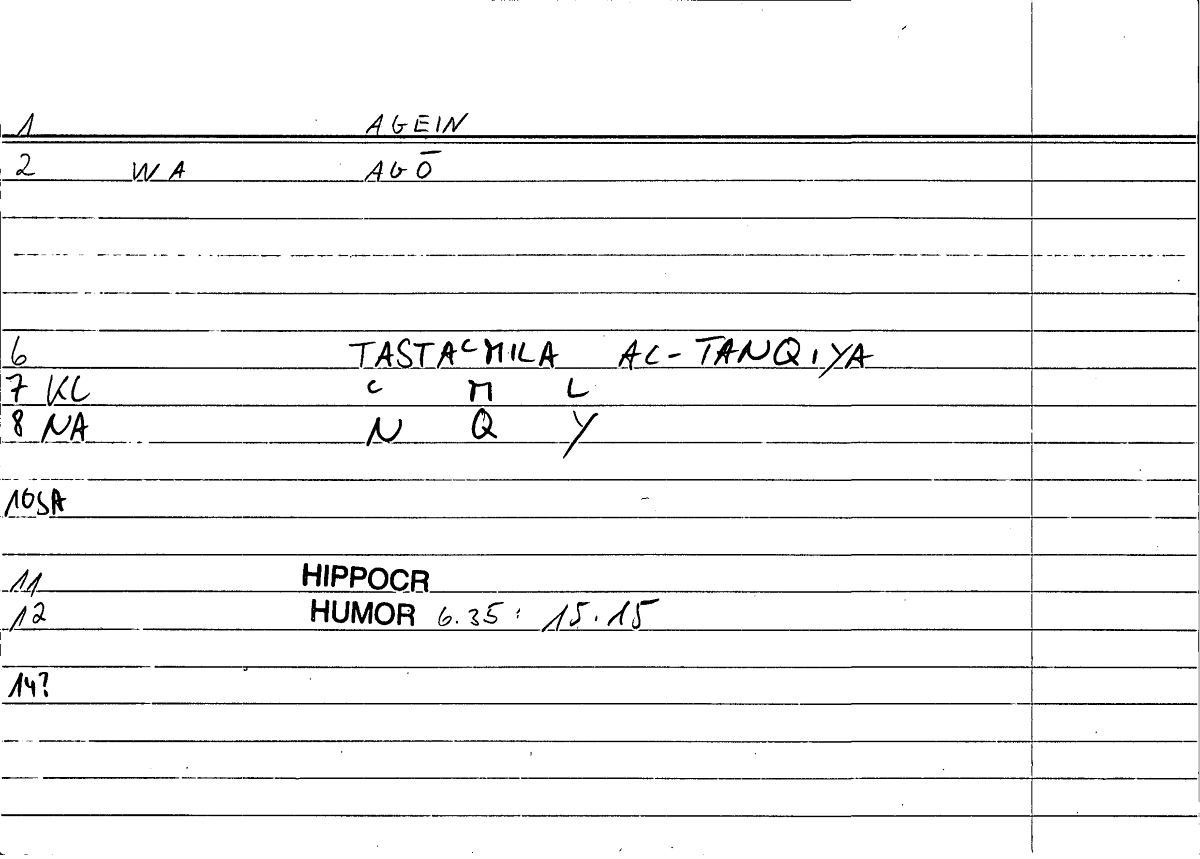 1 AGEIN
2 WA AGŌ
6 TASTAᶜMILA AL-TANQIYA
7 KL ᶜ M L
8 NA N Q Y
10 SA
11 HIPPOCR
12 HUMOR 6.35: 15.15
14?